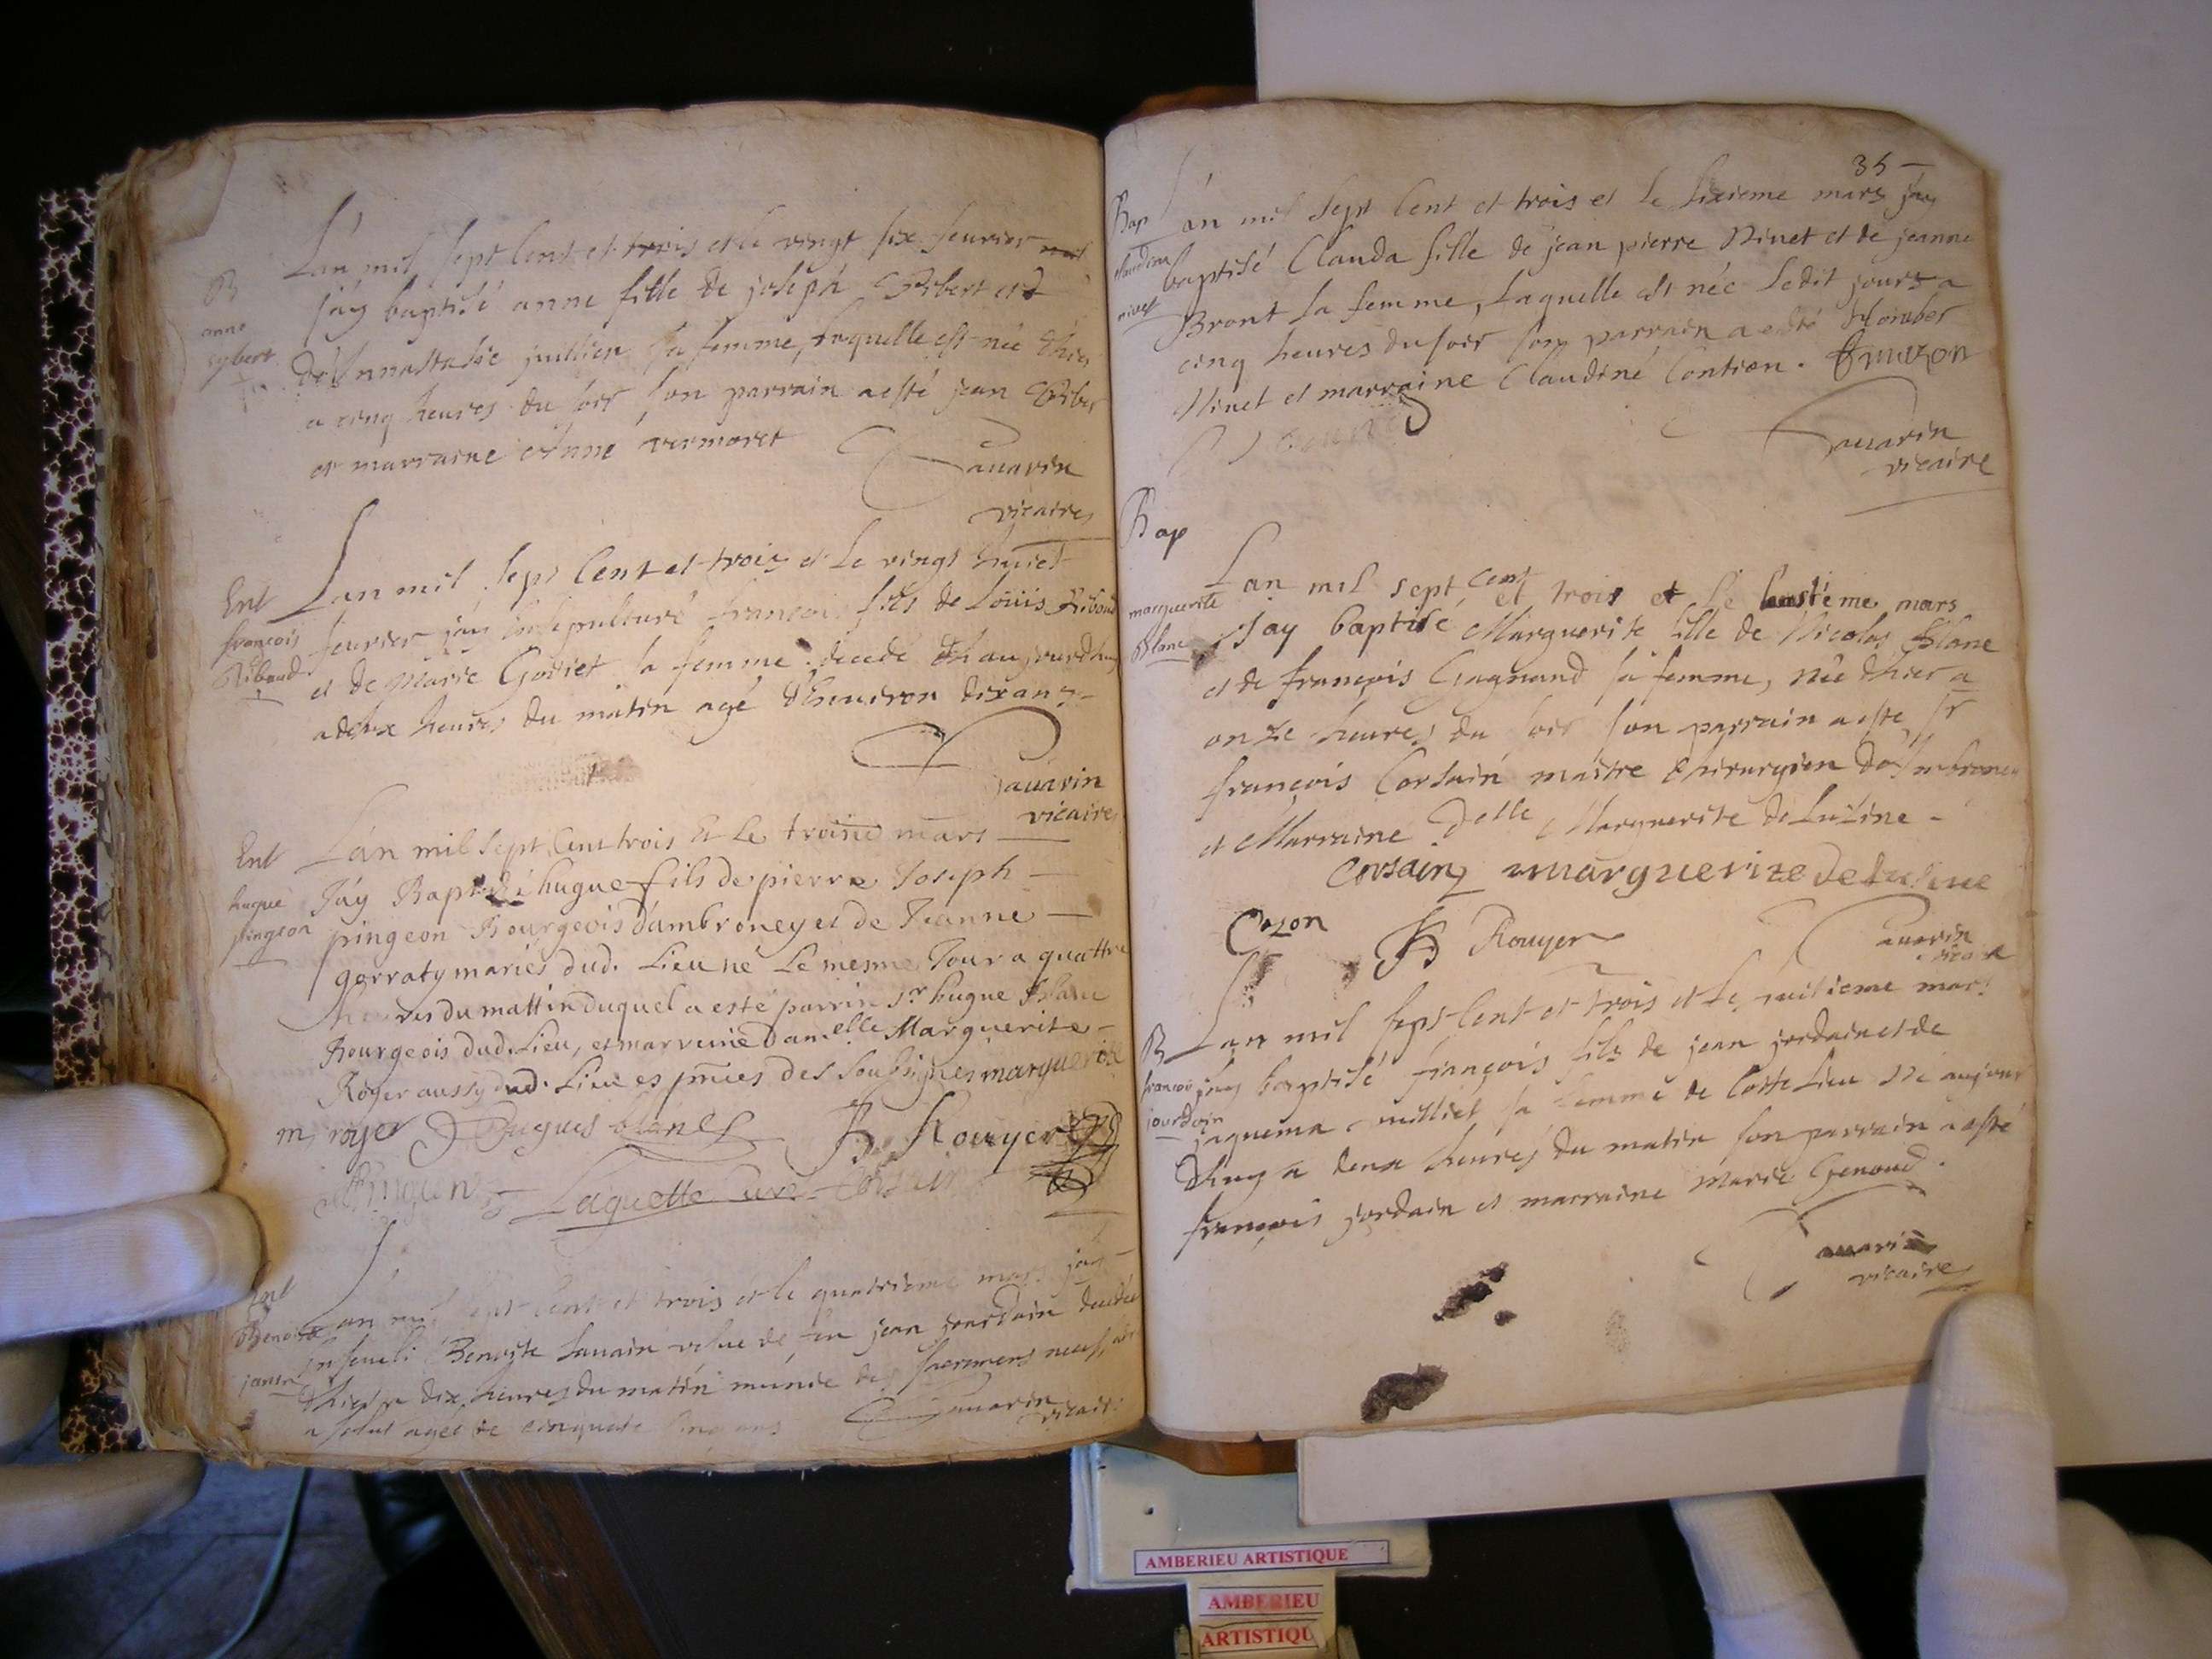 B
anne
rybert
L'an mil sept Cent et trois et le vingt six feurier
j'ay baptisé anne fille de joseph Ribert et
d'Annastasie jullien sa femme, laquelle est née d'hier
a cinq heures du soir son parrain a esté jean Riber
et marraine Anne vermoret
Sauarin
vicaire
Ent
françois
Ribaud
Lan mil sept Cent et trois et Le vingt huict
feurier j'ay françois fils de Loüis Riboud
et de Marie Goriet sa femme decedé aujourdhuy
a deux heures du matin agé d'Enuiron dix ans
Sauarin
vicaire
Ent
hugue
pingeon
L'an mil sept Cent trois Et Le mars
J'ay Baptisé hugue fils de pierre Joseph
pingeon Bourgeois d'ambroney et de Jeanne
gerraty mariés dud. Lieu né Le mesme Jour a quattre
heures du mattin duquel a esté parrin sr hugue Blanc
Bourgeois dud. Lieu, et marreine Dam.elle Marguerite
Roger aussy dud. Lieu es pñces des soubsignes marguerite
m royer Hugues blanc B. Rouyer
Laguette Curé Corsain
Ent
Benoite
janin
L'an mil sept Cent et trois et le quatrieme mars j'ay
Enseueli Benoite Janain vefue de feu jean jourdain decedée
d'hier a dix heures du matin munie des sacremens
agée de cinquate cinq ans Sauarin
vicaire
35
Bap
claudine
ninet
L'an mil sept Cent et trois et le sixieme mars j'ay
baptisé Clauda fille de jean pierre Ninet et de jeanne
Bront sa femme, Laquelle est née Ledit jour a
cinq heures du soir son parrain a esté
Ninet et marraine Claudine Contion.
Sauarin
vicaire
Bap
marguerite
Blanc
Lan mil sept cent et trois et le mars
J'ay baptisé Marguerite fille de Nicolas Blanc
et de françois Gagnand sa femme, née d'hier a
onze heures du soir son parrain a esté Sr
françois Corsain maitre Chirurgien d'Ambroney
et Marraine Delle Marguerite de Luisine
Corsain marguerite de
Cozon B Rouyer Sauarin
vicaire
B
françoi
jourdain
Lan mil sept Cent et trois et le huitieme mars
j'ay baptisé françois fils de jean jordain et de
jaquema milliet sa femme de Cotte Lieu Né aujour
d'huy a deux heures du matin son parrain a esté
françois jordain et marraine Marie Genoud.
Sauarin
vicaire
AMBERIEU ARTISTIQUE
AMBERIEU
ARTISTIQU